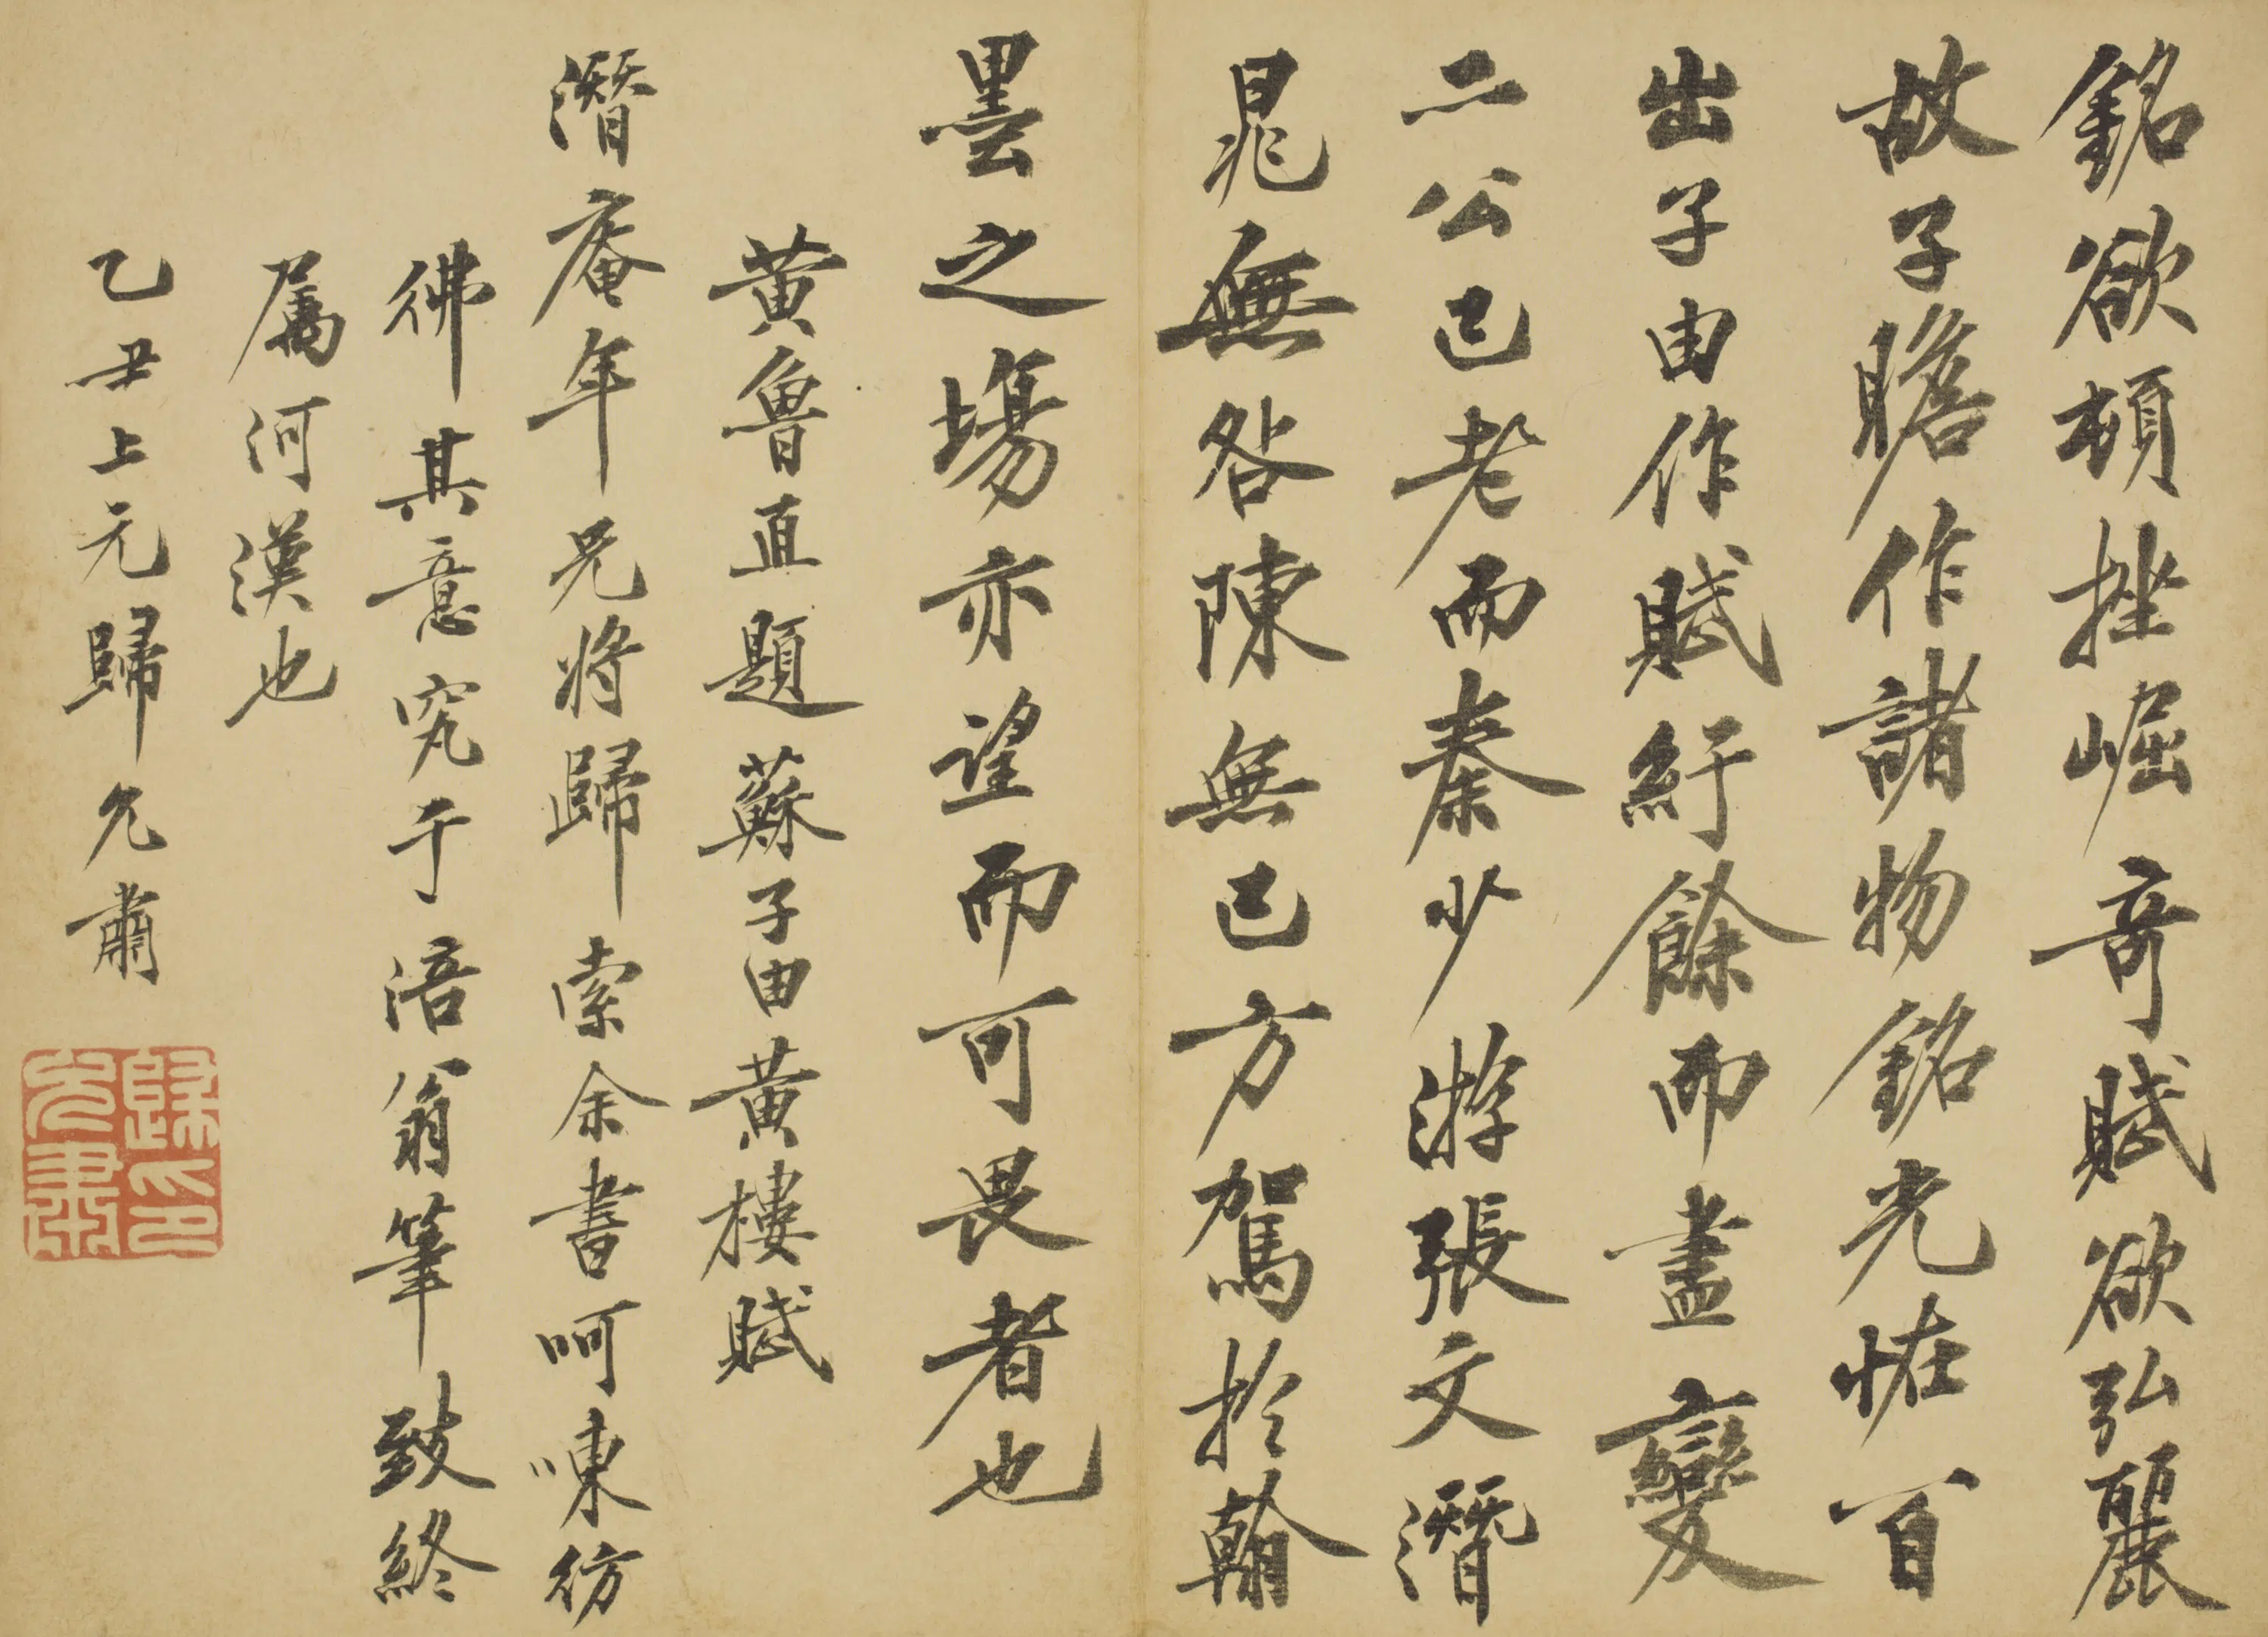 銘欲頓挫崛奇賦欲弘麗
故子瞻作諸物銘光怪百
出子由作賦紆餘而盡變
二公已老而秦少游張文潛
晁無咎陳無己方駕於翰
墨之場亦望而可畏者也
黃魯直題蘇子由黃樓賦
潛庵年兄將歸索余書呵凍彷
彿其意究于涪翁筆致終
属河漢也
乙丑上元歸允肅
歸允肅印